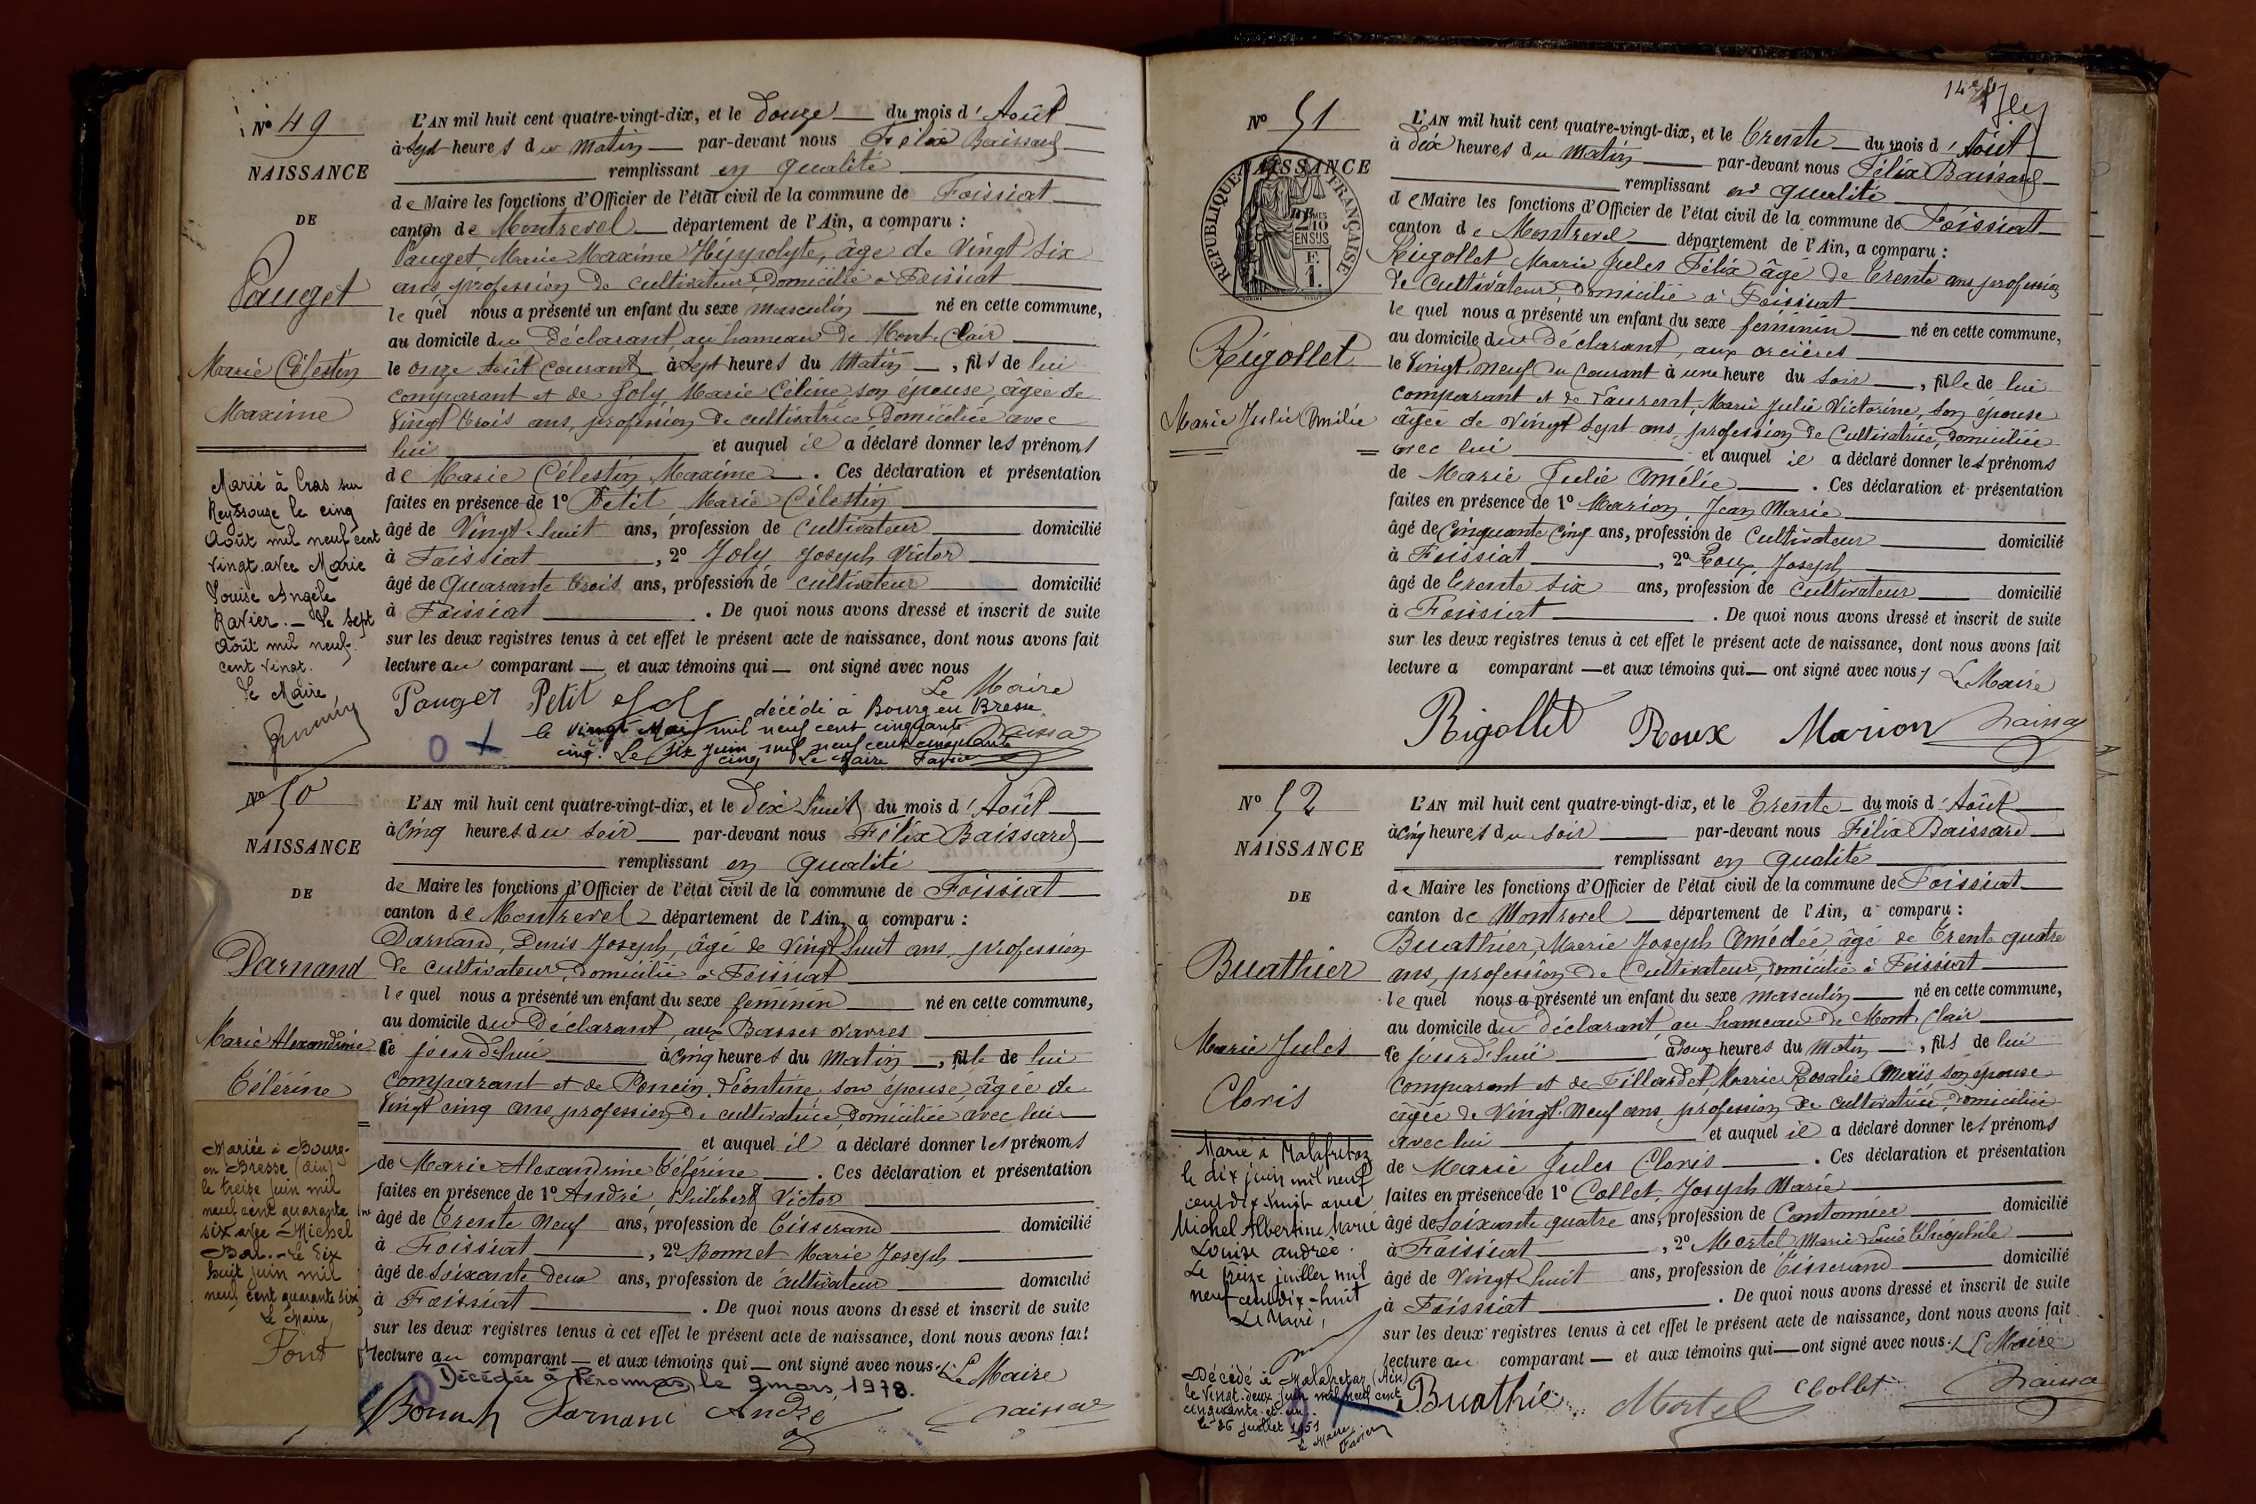 N° 49
NAISSANCE
DE
Pauget
Marie Célestin
Maxime
Marié à Cras sur
Reyssouze le cinq
Août mil neuf cent
vingt avec Marie
Louise Angèle
Ravier. — Le sept
Août mil neuf
cent vingt.
Le Maire,
L'AN mil huit cent quatre-vingt-dix, et le Douze du mois d'Août
à Sept heures du Matin par-devant nous Félix Baissard
remplissant en qualité
de Maire les fonctions d'Officier de l'état civil de la commune de Foissiat
canton de Montrevel département de l'Ain, a comparu :
Pauget Marie Maxime Hyppolyte, âgé de Vingt six
ans, profession de cultivateur, domicilié à Foissiat
lequel nous a présenté un enfant du sexe masculin né en cette commune,
au domicile du Déclarant au hameau de Mont-Clair
le onze Août courant à Sept heures du Matin, fils de lui
comparant et de Joly Marie Céline, son épouse, âgée de
Vingt trois ans, profession de cultivatrice, Domiciliée avec
lui et auquel il a déclaré donner les prénoms
de Marie Célestin Maxime. Ces déclaration et présentation
faites en présence de 1° Petit Marie Célestin
âgé de Vingt-huit ans, profession de cultivateur domicilié
à Foissiat, 2° Joly Joseph Victor
âgé de Quarante trois ans, profession de cultivateur domicilié
à Foissiat. De quoi nous avons dressé et inscrit de suite
sur les deux registres tenus à cet effet le présent acte de naissance, dont nous avons fait
lecture au comparant — et aux témoins qui — ont signé avec nous
Le Maire
Pauget Petit
décédé à Bourg en Bresse
le vingt Mai mil neuf cent cinquante
cinq. Le six juin mil neuf cent cinquante
cinq Le Maire
N° 50
NAISSANCE
DE
Darnand
Marie Alexandrine
Célérine
Mariée à Bourg-
en-Bresse (Ain)
le treize juin mil
neuf cent quarante
six avec Michel
Bal. — Le dix
huit juin mil
neuf cent quarante six
Le Maire,
Font
L'AN mil huit cent quatre-vingt-dix, et le Dix huit du mois d'Août
à Cinq heures du Soir par-devant nous Félix Baissard
remplissant en qualité
de Maire les fonctions d'Officier de l'état civil de la commune de Foissiat
canton de Montrevel département de l'Ain, a comparu :
Darnand, Denis Joseph, âgé de Vingt huit ans, profession
de cultivateur, domicilié à Foissiat
lequel nous a présenté un enfant du sexe féminin né en cette commune,
au domicile du Déclarant, aux Basses
ce jourd'hui à Cinq heures du Matin, fille de lui
comparant et de Poncin, Léontine, son épouse, âgée de
Vingt cinq ans, profession de cultivatrice, domiciliée avec lui
et auquel il a déclaré donner les prénoms
de Marie Alexandrine Célérine. Ces déclaration et présentation
faites en présence de 1° André, Philibert Victor
âgé de trente neuf ans, profession de Tisserand domicilié
à Foissiat, 2° Bonnet Marie Joseph
âgé de Soixante deux ans, profession de cultivateur domicilié
à Foissiat. De quoi nous avons dressé et inscrit de suite
sur les deux registres tenus à cet effet le présent acte de naissance, dont nous avons fait
lecture au comparant — et aux témoins qui — ont signé avec nous. Le Maire
Décédée à Péronnas le 9 mars 1978.
Darnand André
N° 51
NAISSANCE
RÉPUBLIQUE FRANÇAISE
2/10 EN SUS
F. 1.
Rigollet
Marie Julie Amélie
L'AN mil huit cent quatre-vingt-dix, et le trente du mois d'Août
à Dix heures du Matin par-devant nous Félix Baissard
remplissant en qualité
de Maire les fonctions d'Officier de l'état civil de la commune de Foissiat
canton de Montrevel département de l'Ain, a comparu :
Rigollet Marie Jules Félix âgé de trente ans profession
de Cultivateur, Domicilié à Foissiat
lequel nous a présenté un enfant du sexe féminin né en cette commune,
au domicile du déclarant, aux
le Vingt neuf du Courant à une heure du Soir, fille de lui
comparant et de Laurent, Marie Julie Victorine, son épouse
âgée de vingt sept ans, profession de Cultivatrice, domiciliée
avec lui et auquel il a déclaré donner les prénoms
de Marie Julie Amélie. Ces déclaration et présentation
faites en présence de 1° Marion Jean Marie
âgé de Cinquante cinq ans, profession de Cultivateur domicilié
à Foissiat, 2° Roux, Joseph
âgé de trente six ans, profession de cultivateur domicilié
à Foissiat. De quoi nous avons dressé et inscrit de suite
sur les deux registres tenus à cet effet le présent acte de naissance, dont nous avons fait
lecture a comparant — et aux témoins qui — ont signé avec nous, Le Maire
Rigollet Roux Marion
N° 52
NAISSANCE
DE
Buathier
Marie Jules
Cloris
Marié à Malafretaz
le dix juin mil neuf
cent dix-huit avec
Michel Albertine Marie
Louise Andrée.
Le treize juillet mil
neuf cent dix-huit
Le Maire,
Décédé à Malafretaz (Ain)
le vingt-deux juin mil neuf cent
cinquante et un
le 26 juillet 1951
Le Maire
L'AN mil huit cent quatre-vingt-dix, et le trente du mois d'Août
à Cinq heures du soir par-devant nous Félix Baissard
remplissant en qualité
de Maire les fonctions d'Officier de l'état civil de la commune de Foissiat
canton de Montrevel département de l'Ain, a comparu :
Buathier, Marie Joseph Amédée, âgé de trente quatre
ans, profession de Cultivateur, domicilié à Foissiat
lequel nous a présenté un enfant du sexe masculin né en cette commune,
au domicile du déclarant au hameau de Mont Clair
ce jourd'hui à heures du Matin, fils de lui
comparant et de Fillardet, Marie Rosalie son épouse
âgée de Vingt-Neuf ans, profession de cultivatrice, domiciliée
avec lui et auquel il a déclaré donner les prénoms
de Marie Jules Cloris. Ces déclaration et présentation
faites en présence de 1° Collet, Joseph Marie
âgé de Soixante quatre ans, profession de Cantonnier domicilié
à Foissiat, 2° Mortel Marie Théophile
âgé de Vingt huit ans, profession de Tisserand domicilié
à Foissiat. De quoi nous avons dressé et inscrit de suite
sur les deux registres tenus à cet effet le présent acte de naissance, dont nous avons fait
lecture au comparant — et aux témoins qui — ont signé avec nous. Le Maire
Buathier Mortel Collet